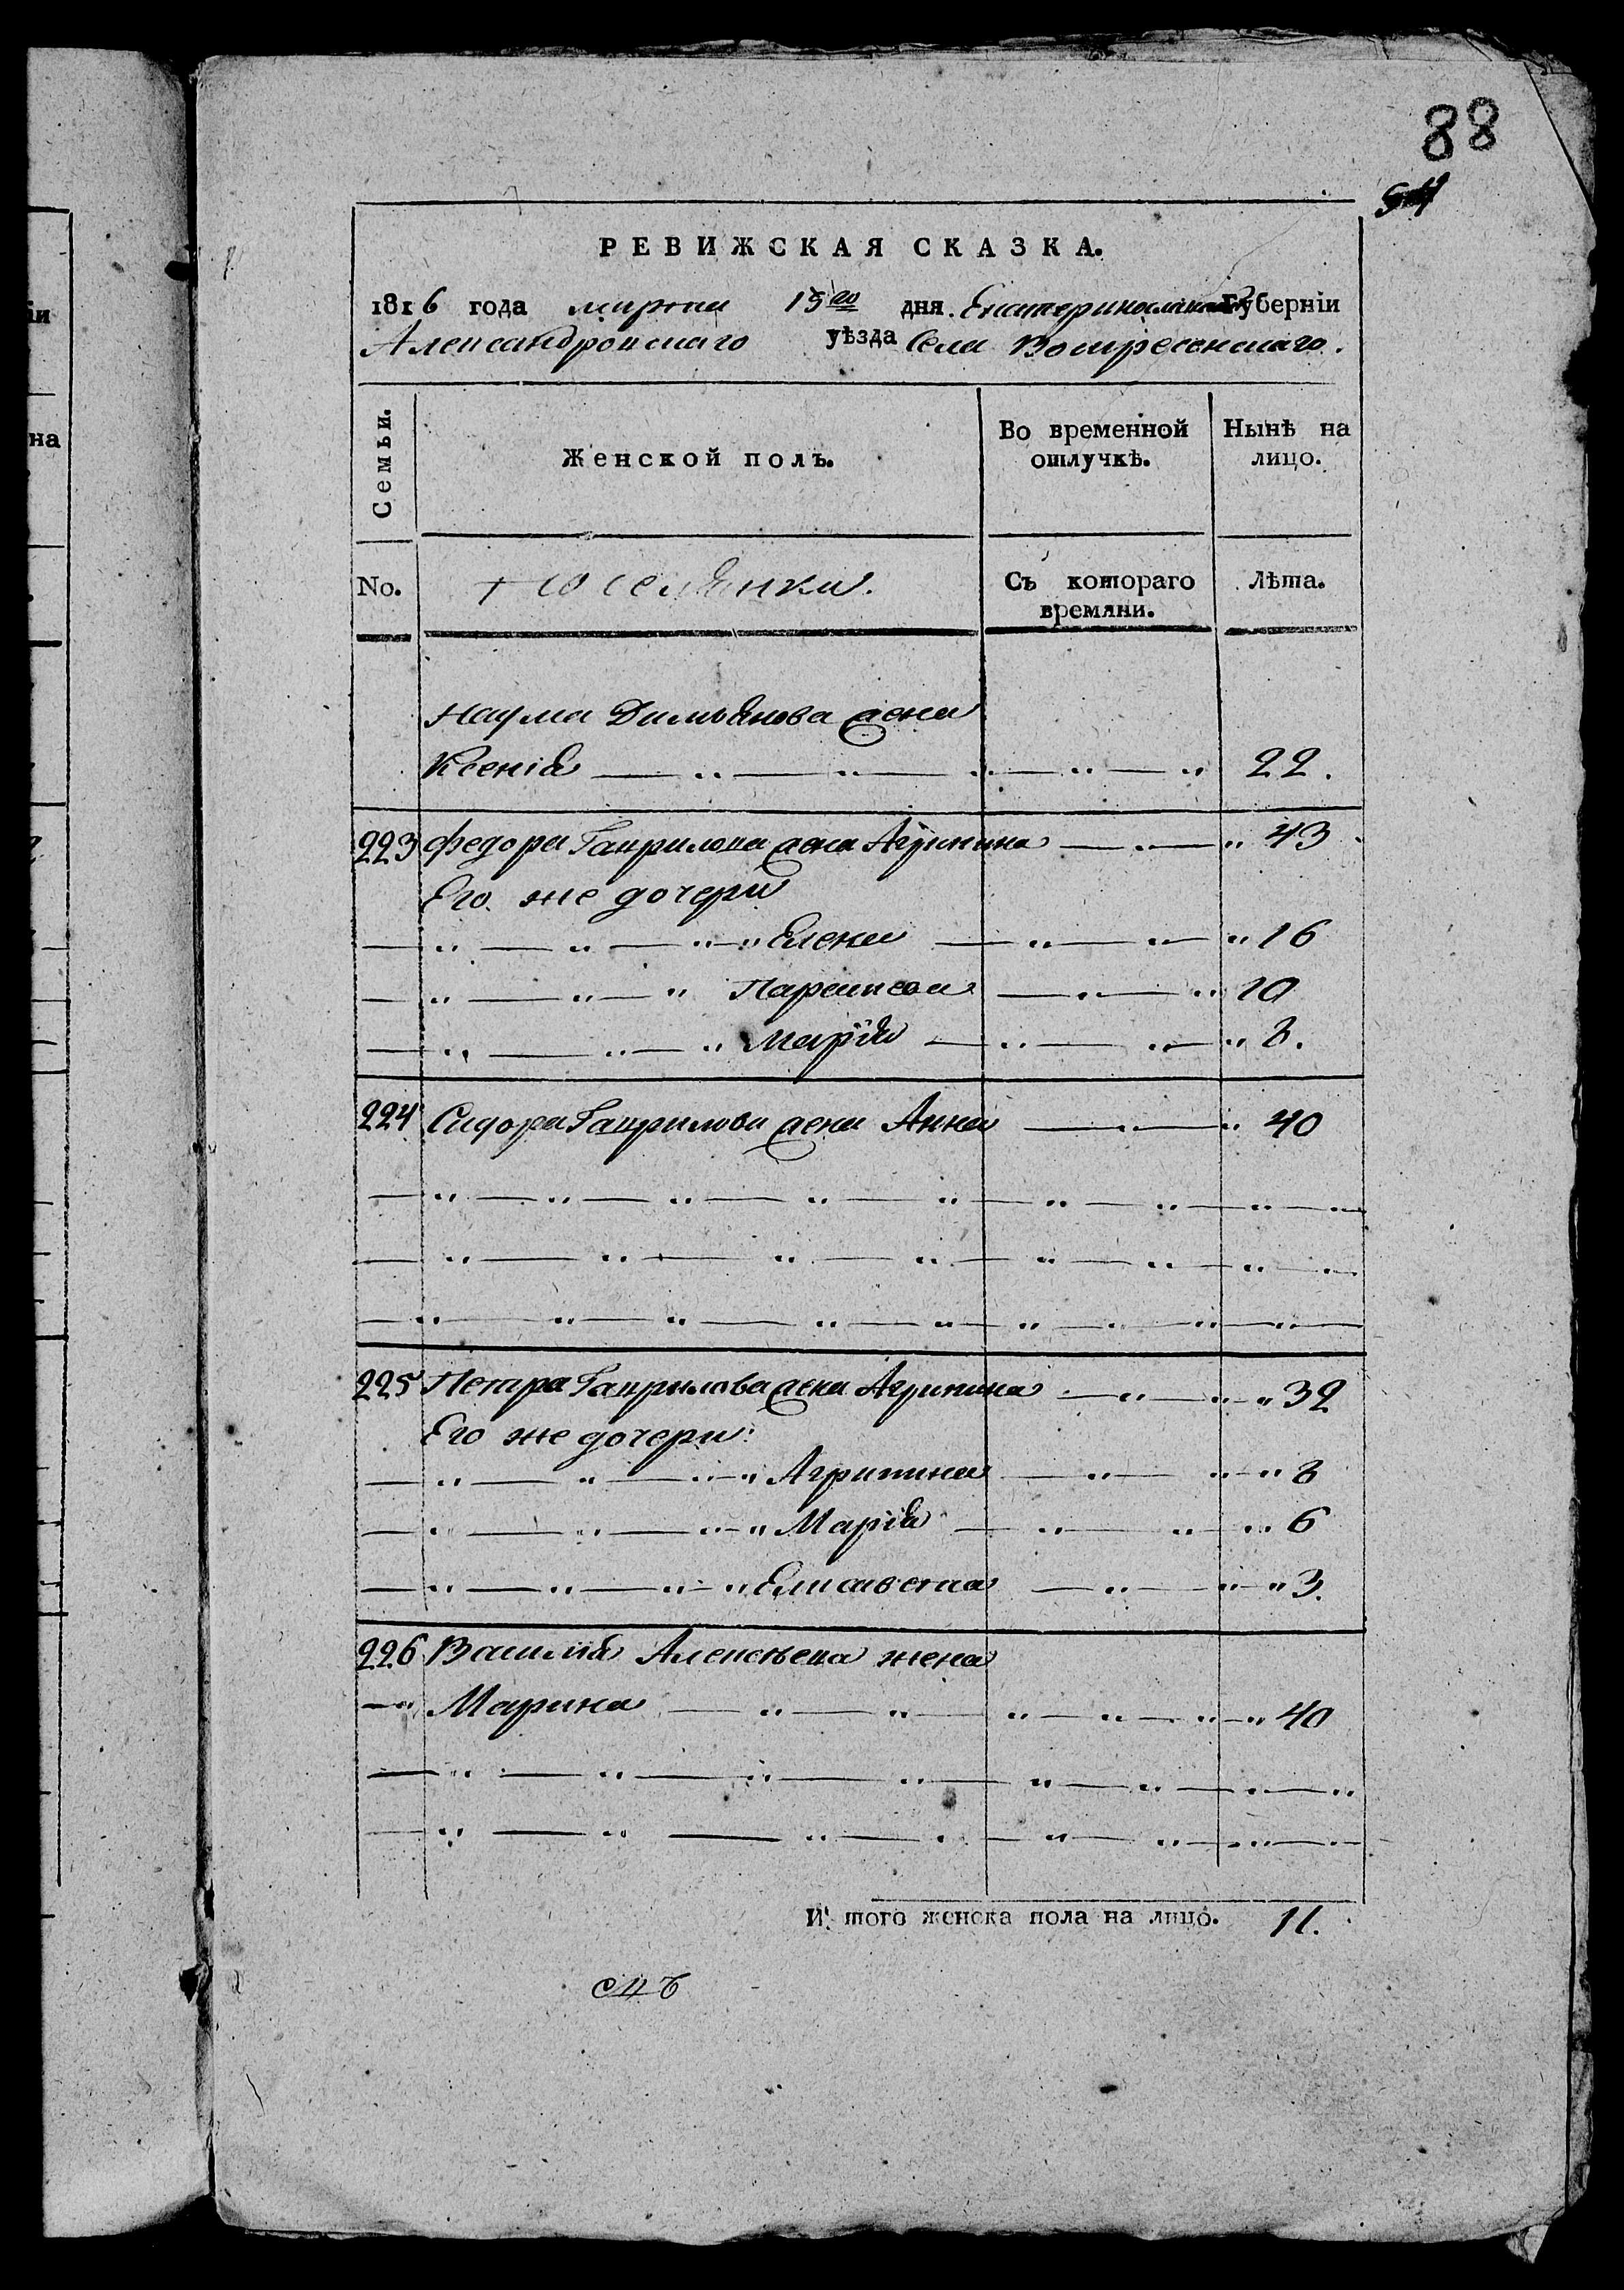 88
54
РЕВИЖСКАЯ СКАЗКА.
1816 года марта 15го дня. Екатеринославской Губерніи
Александровскаго уѣзда Села Воскресенскаго.
Семьи.
Женской полъ.
Во временной отлучкѣ.
Нынѣ на лицо.
No.
Поселянки.
Съ котораго времяни.
Лѣта.
Наума Димьянова жена
Ксенія 22.
223 Федора Гаврилова жена Агрипина 43
Его же дочери
Елена 16
Параскева 10
Марія 8.
224 Сидора Гаврилова жена Анна 40
225 Петра Гаврилова жена Агрипина 32
Его же дочери:
Агрипина 8
Марія 6
Елисавета 3.
226 Василія Алексѣева жена
Марина 40
И того женска пола на лицо. 11.